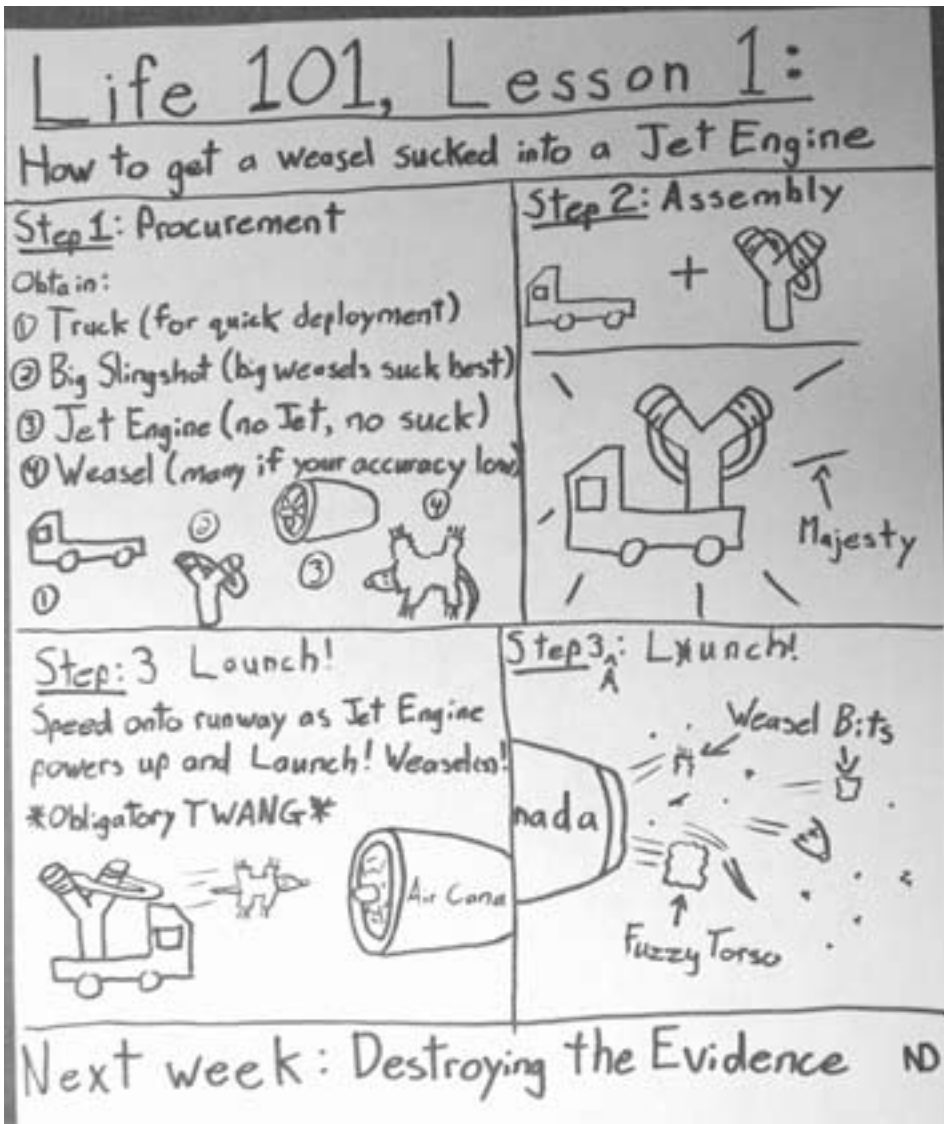 Life 101, Lesson 1:
How to get a weasel sucked into a Jet Engine
Step 1: Procurement
Obtain:
① Truck (for quick deployment)
② Big Slingshot (big weasels suck best)
③ Jet Engine (no Jet, no suck)
④ Weasel (many if your accuracy low)
①
②
③
④
Step 2: Assembly
+
Majesty
Step: 3 Launch!
Speed onto runway as Jet Engine
powers up and Launch! Weaselen!
*Obligatory TWANG*
Air Cana
Step 3A: Lxunch!
Weasel Bits
nada
Fuzzy Torso
Next week: Destroying the Evidence ND